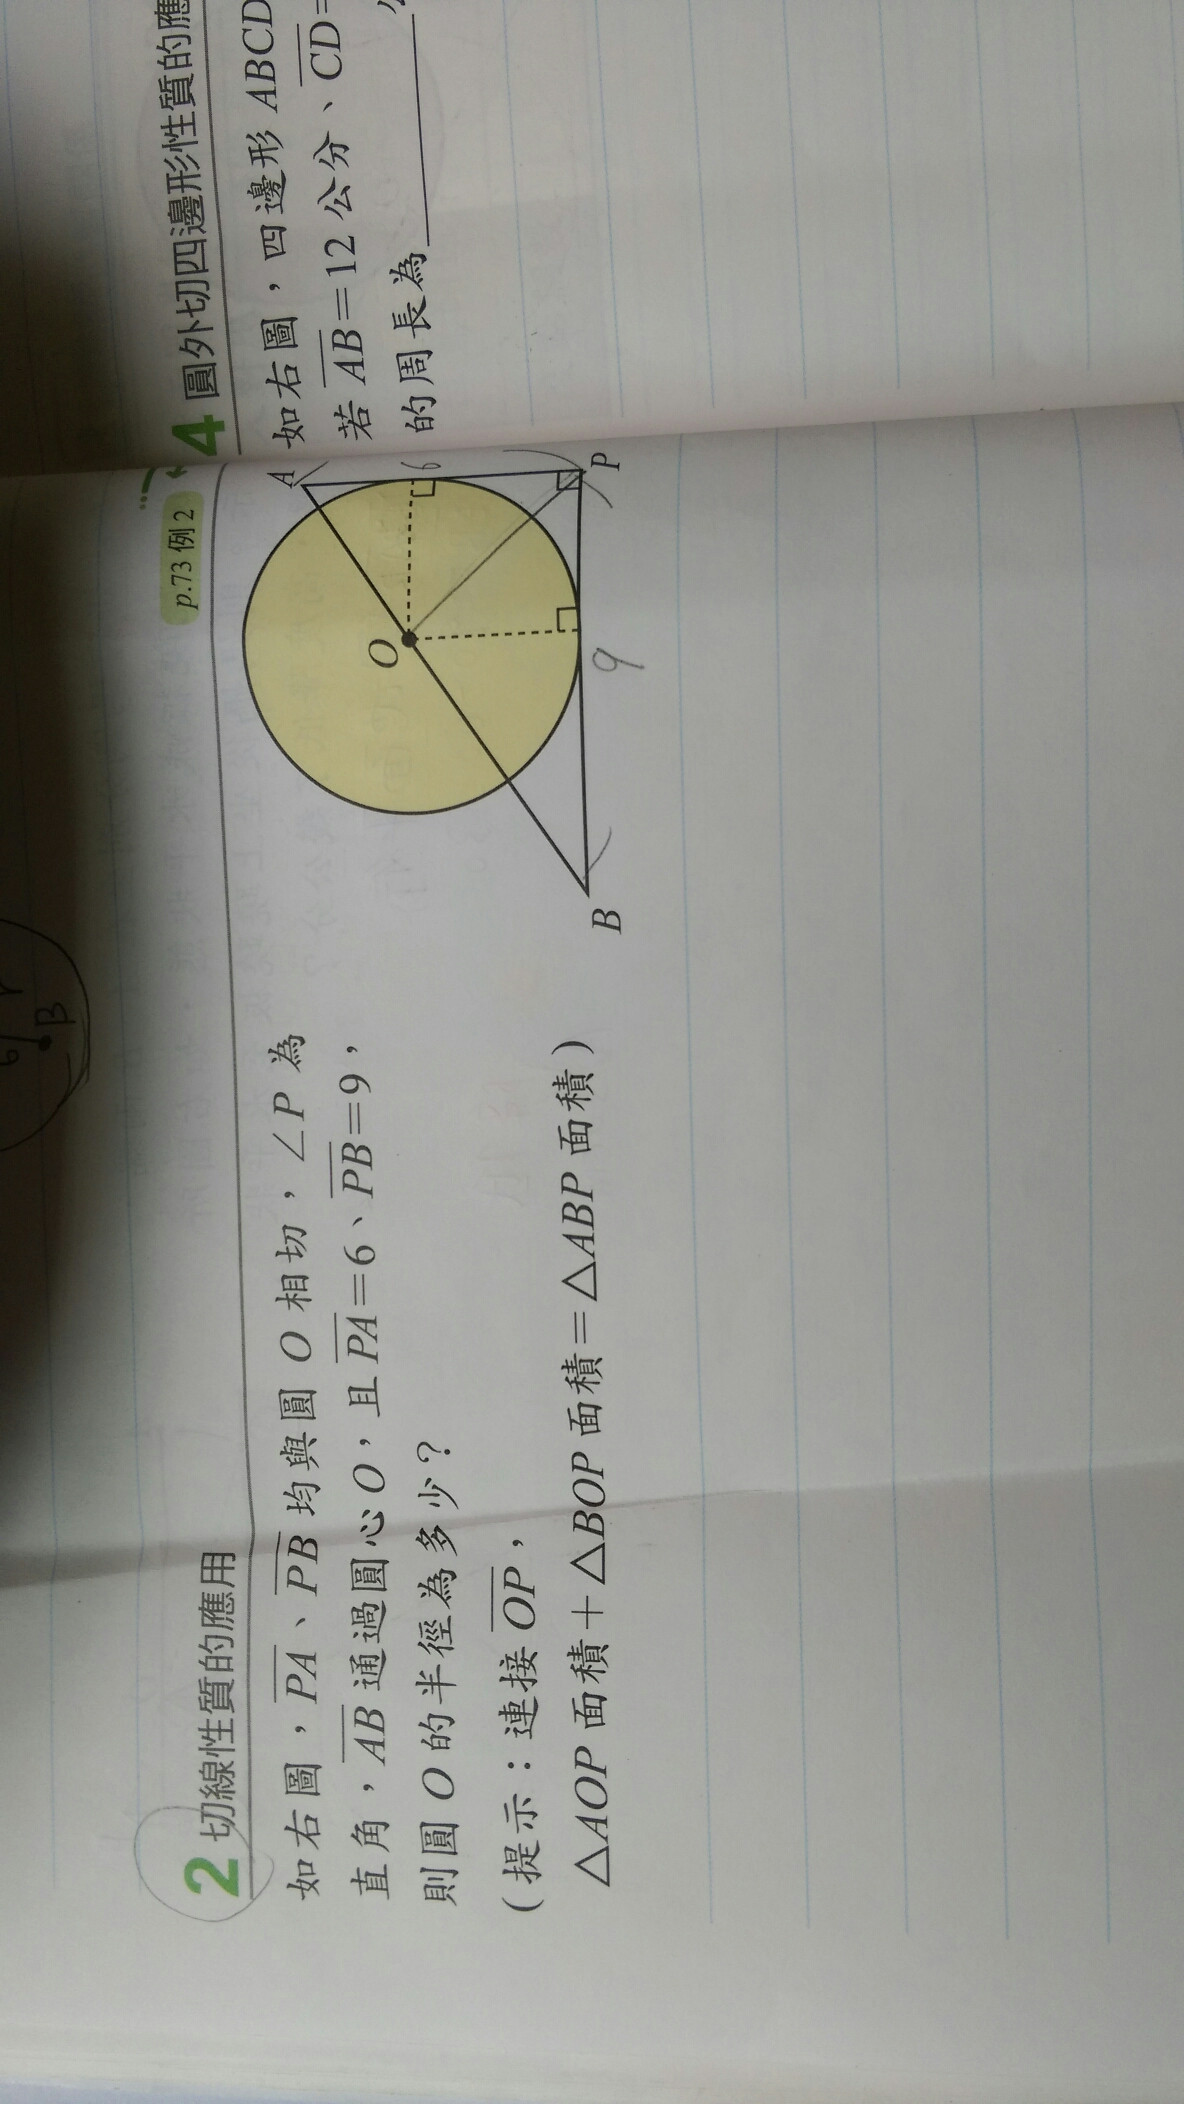 2 切線性質的應用
p.73 例2
如右圖，PA、PB 均與圓 O 相切，∠P 為
直角，AB 通過圓心 O，且 PA＝6、PB＝9，
則圓 O 的半徑為多少？
（提示：連接 OP，
△AOP 面積＋△BOP 面積＝△ABP 面積）
A
6
O
P
9
B
B
4 圓外切四邊形性質的應
如右圖，四邊形 ABCD
若 AB＝12 公分、CD＝
的周長為